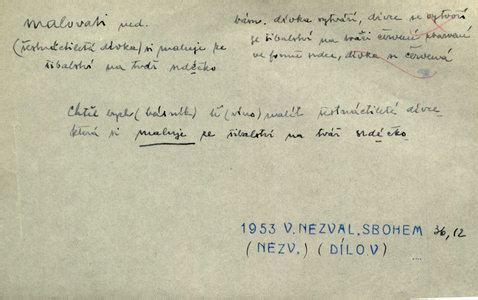 malovati ned.
(šestnáctiletá dívka) si maluje ze
šibalství na tvář srdéčko
básn. dívka vytváří, dívce se vytvoří
ze šibalství na tváři červené zbarvení
ve formě srdce, dívka si červená
Chtěl bych (básník) tě (víno) nalít šestnáctileté dívce
která si maluje ze šibalství na tvář srdéčko
1953 V. NEZVAL, SBOHEM 36,12
(NEZV.) (DÍLO V)